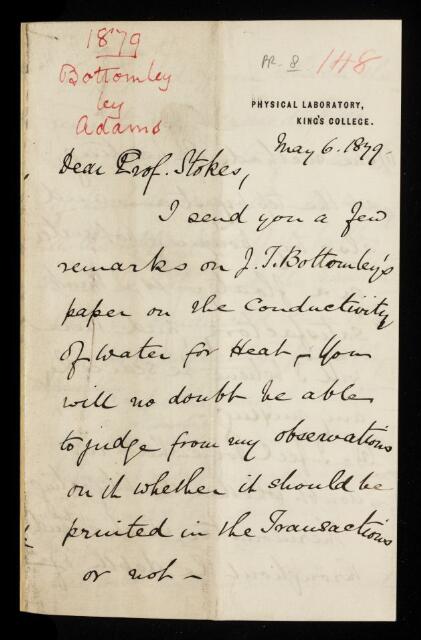 1879
Bottomley
by
Adams
PR. 8 148
PHYSICAL LABORATORY,
KING'S COLLEGE.
May 6. 1879.
Dear Prof. Stokes,
I send you a few
remarks on J. T. Bottomley's
paper on the Conductivity
of Water for Heat – You
will no doubt be able
to judge from my observations
on it whether it should be
printed in the Transactions
or not –